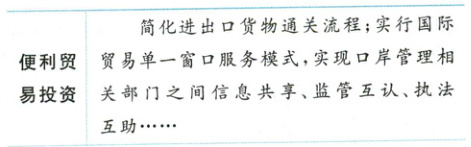 便利贸
易投资
简化进出口货物通关流程；实行国际
贸易单一窗口服务模式，实现口岸管理相
关部门之间信息共享、监管互认、执法
互助……